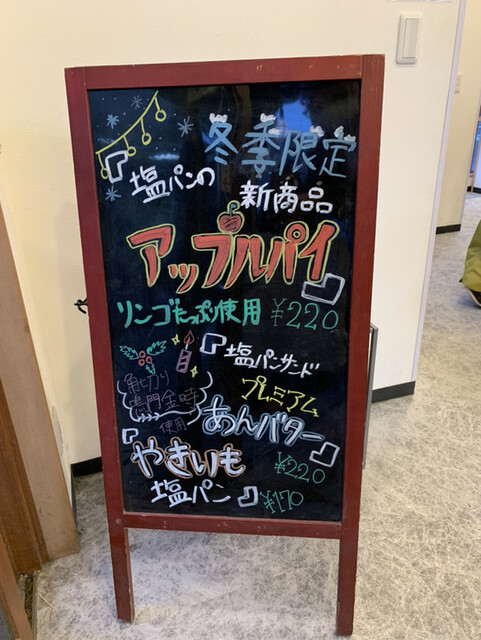 冬季限定
『塩パンの
新商品
アップルパイ』
リンゴたっぷり使用 ¥220
『塩パンサンド
プレミアム
あんバター』
¥220
角切り
鳴門金時
使用
『やきいも
塩パン』 ¥170